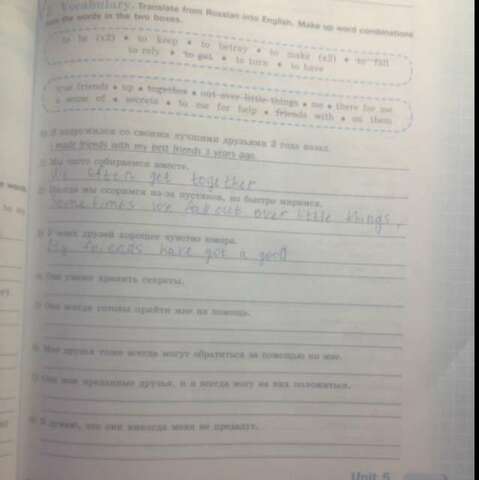 Vocabulary. Translate from Russian into English. Make up word combinations
from the words in the two boxes.
to be (x2) • to keep • to betray • to make (x2) • to fall
to rely • to get • to turn • to have
true friends • up • together • out over little things • me • there for me
a sense of • secrets • to me for help • friends with • on them
Я подружился со своими лучшими друзьями 3 года назад.
I made friends with my best friends 3 years ago.
Мы часто собираемся вместе.
We often get together
Иногда мы ссоримся из-за пустяков, но быстро миримся.
Sometimes we fall out over little things,
У моих друзей хорошее чувство юмора.
My friends have got a good
Они умеют хранить секреты.
Они всегда готовы прийти мне на помощь.
Мои друзья тоже всегда могут обратиться за помощью ко мне.
Они мои преданные друзья, и я всегда могу на них положиться.
Я думаю, что они никогда меня не предадут.
Unit 5